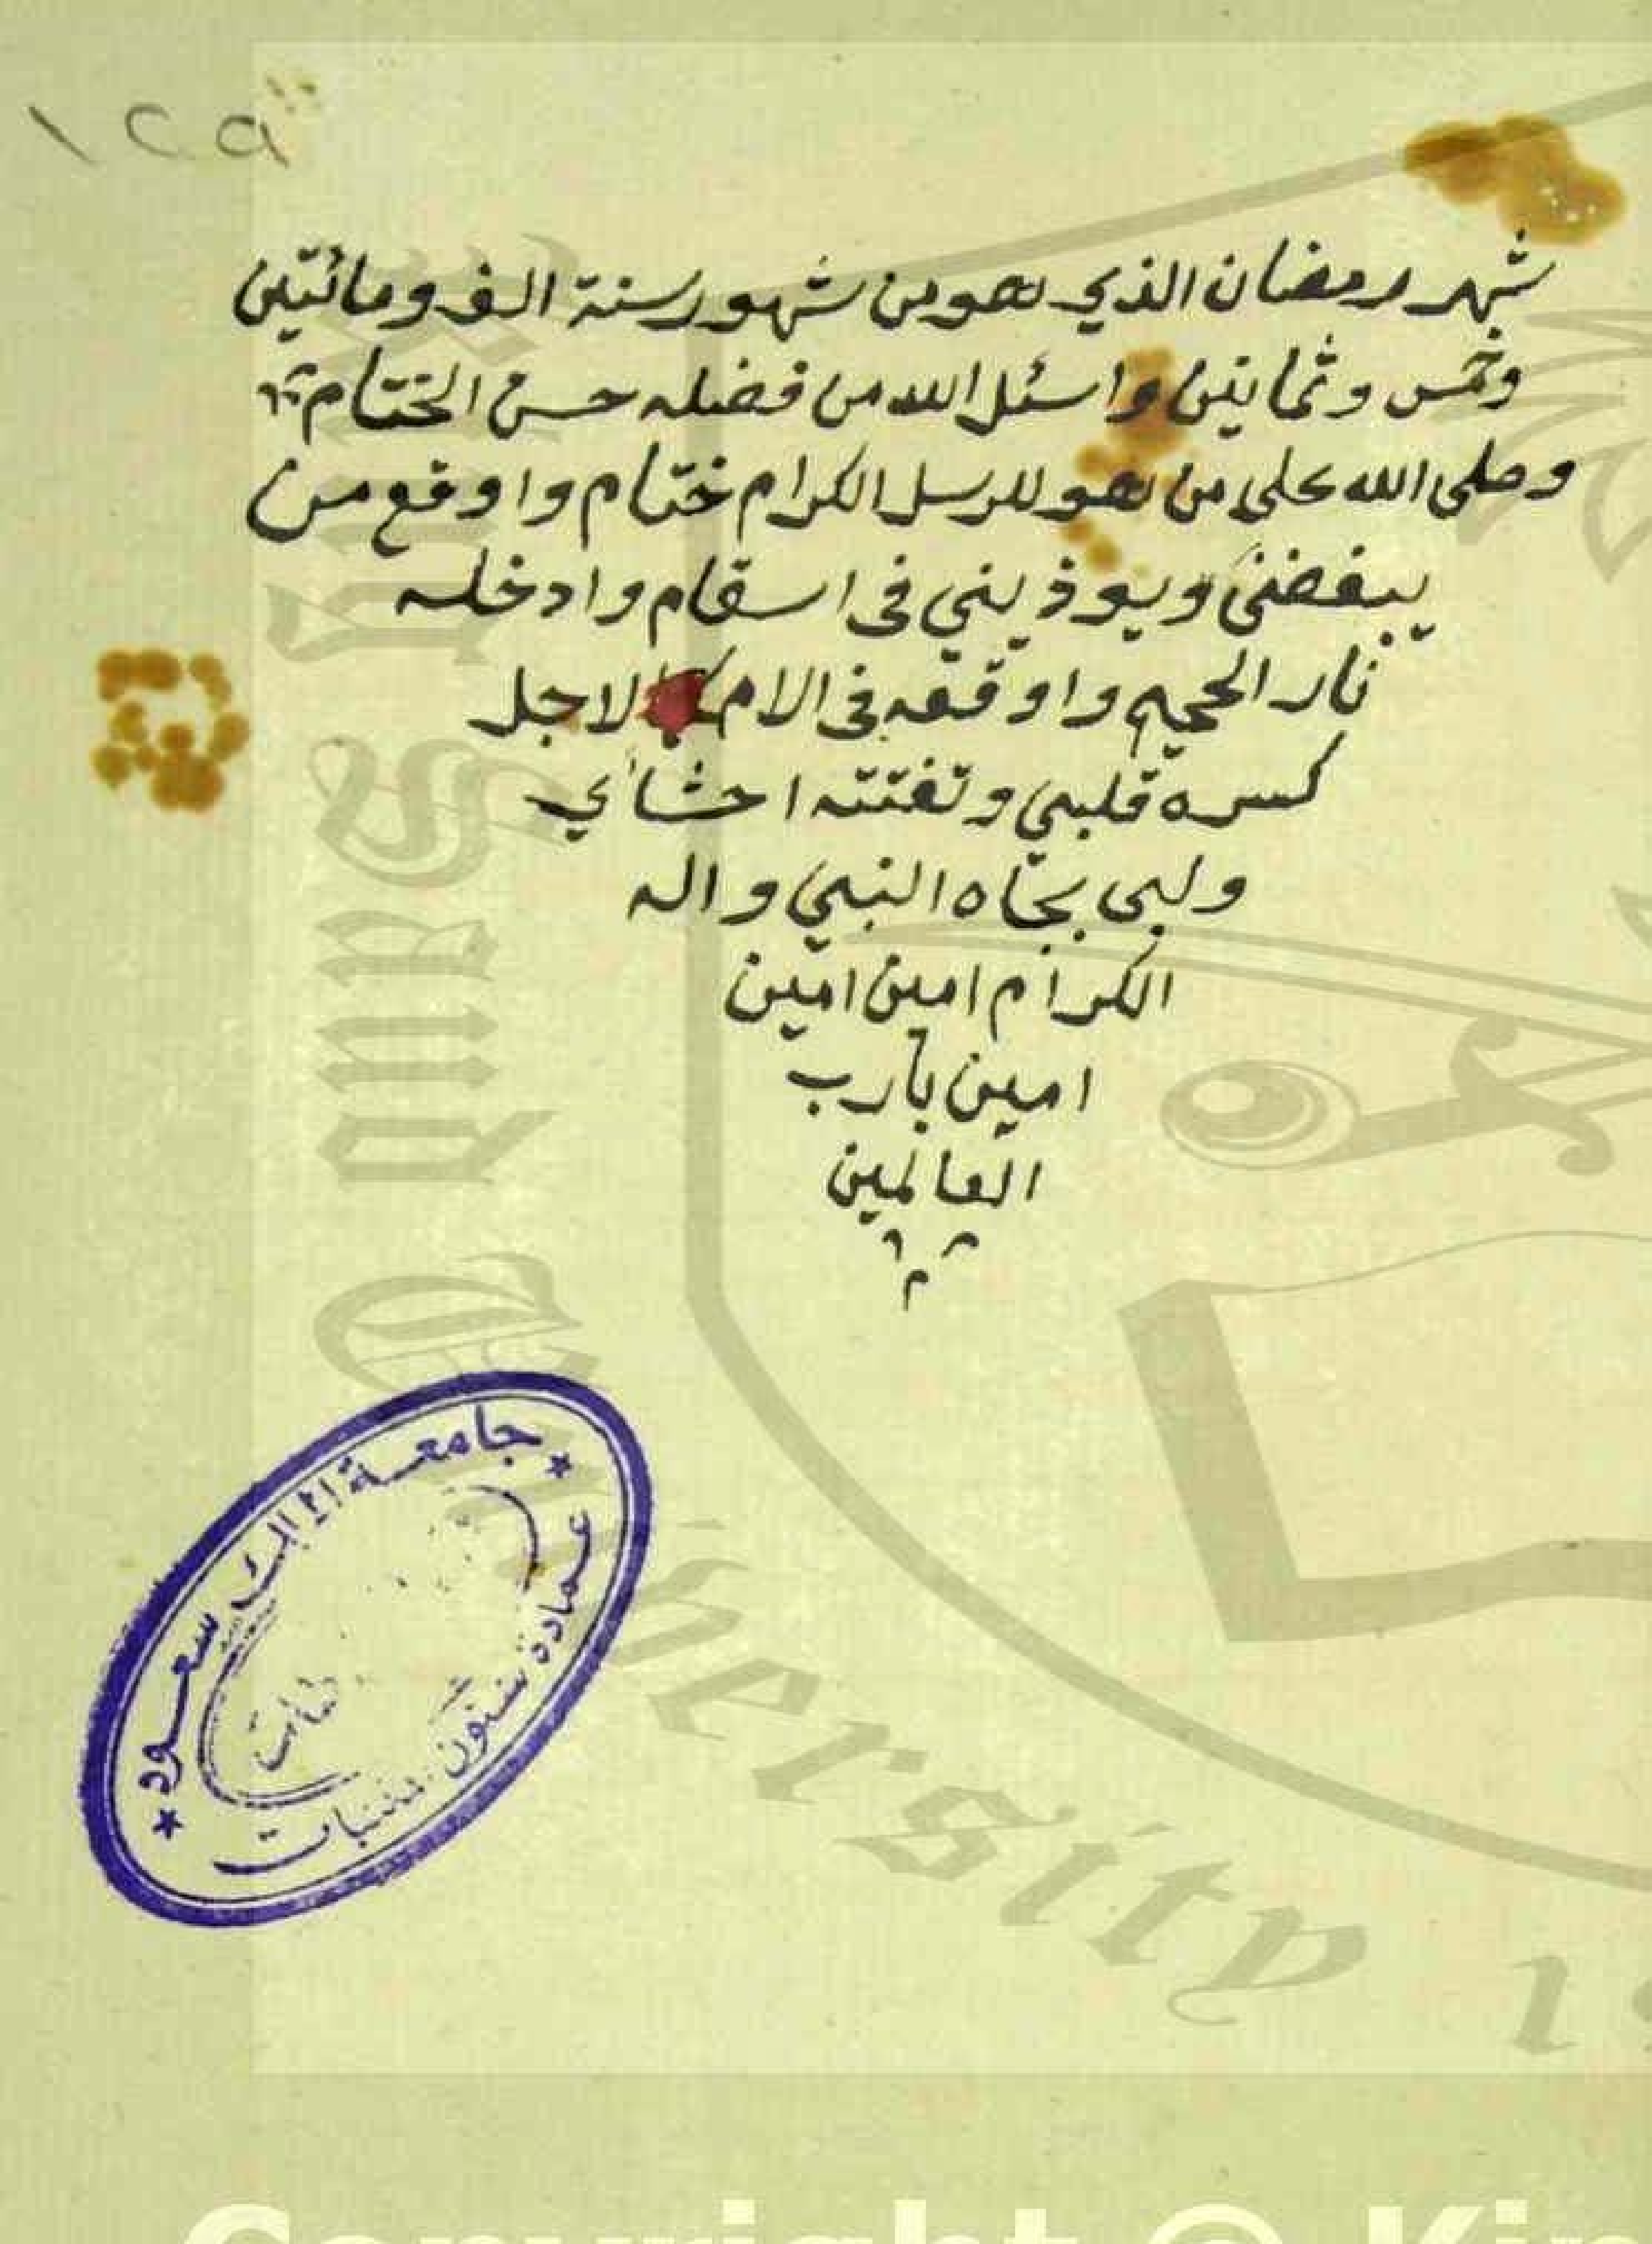 ١٢٩
شهر رمضان الذي هو من شهور سنة الف ومائتين
وخمس وثمانين واسئل الله من فضله حسن الختام
وصلى الله على من هو للرسل الكرام ختام واوقع من
يبغضني ويوذيني فى اسقام وادخله
نار الجحيم واوقعه فى الالام لاجل
كسره قلبي وتفتته احشاي
ولبى بجاه النبي واله
الكرام امين امين
امين يارب
العالمين
م
جامعة الملك سعود
عمادة شئون المكتبات
University
Copyright © Kin